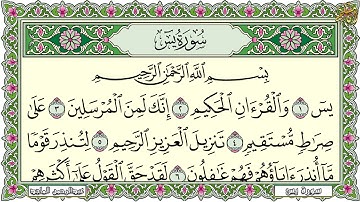 سُورَةُ يسٓ
بِسْمِ اللَّهِ الرَّحْمَٰنِ الرَّحِيمِ
يسٓ ١ وَالْقُرْءَانِ الْحَكِيمِ ٢ إِنَّكَ لَمِنَ الْمُرْسَلِينَ ٣ عَلَىٰ
صِرَاطٍ مُّسْتَقِيمٍ ٤ تَنزِيلَ الْعَزِيزِ الرَّحِيمِ ٥ لِتُنذِرَ قَوْمًا
مَّا أُنذِرَ ءَابَاؤُهُمْ فَهُمْ غَٰفِلُونَ ٦ لَقَدْ حَقَّ الْقَوْلُ عَلَىٰ أَكْثَرِهِمْ
سورة يس